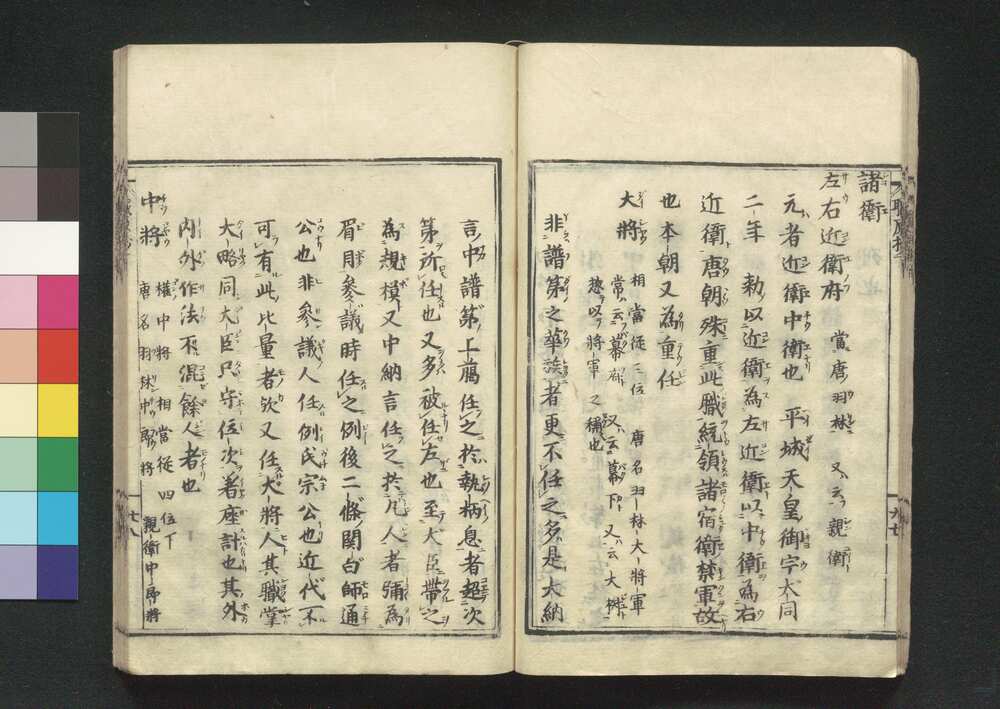 諸衛
左右近衛府 當唐羽林 又云親衛
元者近衛中衛也 平城天皇御宇大同
二年 勅以近衛為左近衛以中衛為右
近衛唐朝殊重此職統領諸宿衛禁軍故
也本朝又為重任
大將 相當從三位 唐名羽林大將軍
常云幕府 又云幕下 又云大樹
惣以將軍之稱也
非譜第之華族者更不任之多是大納
言中譜第上﨟任之於執柄息者超次
第所任也又多被任左也至大臣帶之
為規模又中納言任之於凡人者彌為
眉目參議時任之例後二條關白師通
公也非參議人任例氏宗公也近代不
可有此比量者欤又任大將人其職掌
大略同大臣只守位次著座計也其外
內外作法不混餘人者也
中將 權中將相當從四位下
唐名羽林中郎將 親衛中郎將